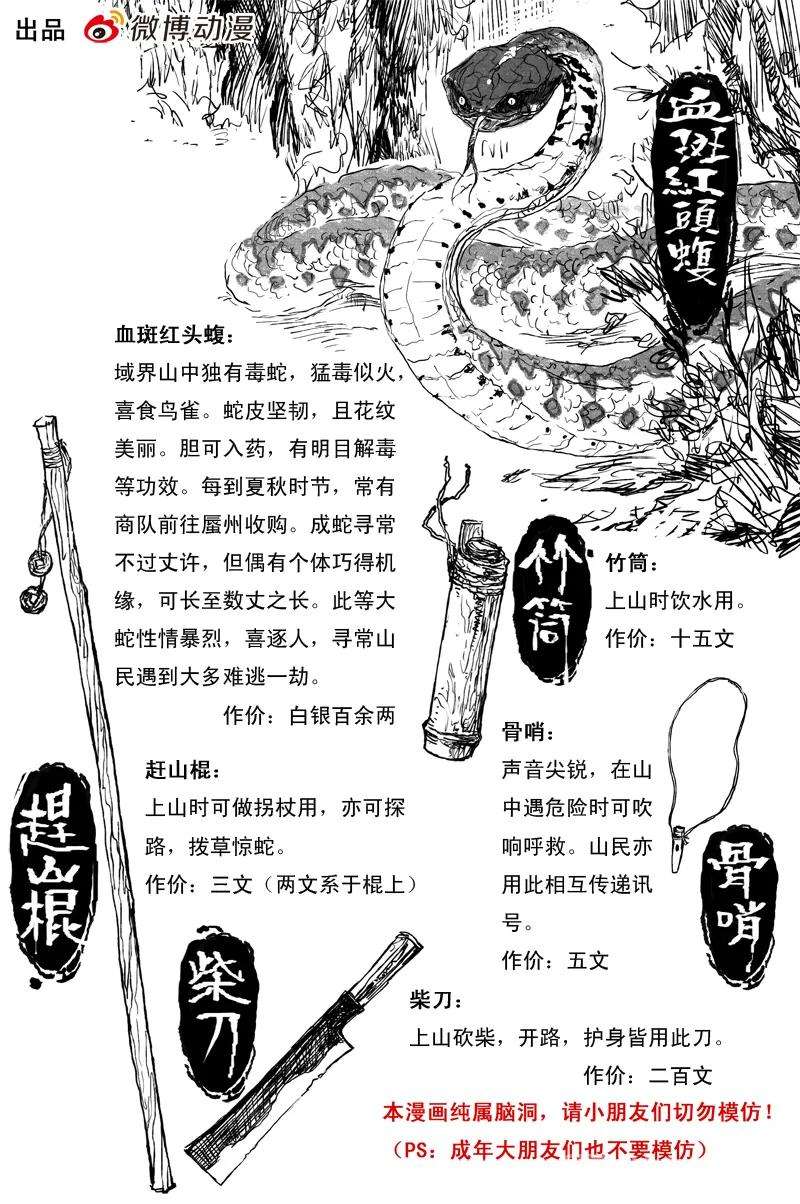 出品 微博动漫
血斑紅頭蝮
血斑红头蝮：
域界山中独有毒蛇，猛毒似火，
喜食鸟雀。蛇皮坚韧，且花纹
美丽。胆可入药，有明目解毒
等功效。每到夏秋时节，常有
商队前往蜃州收购。成蛇寻常
不过丈许，但偶有个体巧得机
缘，可长至数丈之长。此等大
蛇性情暴烈，喜逐人，寻常山
民遇到大多难逃一劫。
作价：白银百余两
竹筒
竹筒：
上山时饮水用。
作价：十五文
趕山棍
赶山棍：
上山时可做拐杖用，亦可探
路，拨草惊蛇。
作价：三文（两文系于棍上）
骨哨：
声音尖锐，在山
中遇危险时可吹
响呼救。山民亦
用此相互传递讯
号。
作价：五文
骨哨
柴刀
柴刀：
上山砍柴，开路，护身皆用此刀。
作价：二百文
本漫画纯属脑洞，请小朋友们切勿模仿！
（PS：成年大朋友们也不要模仿）